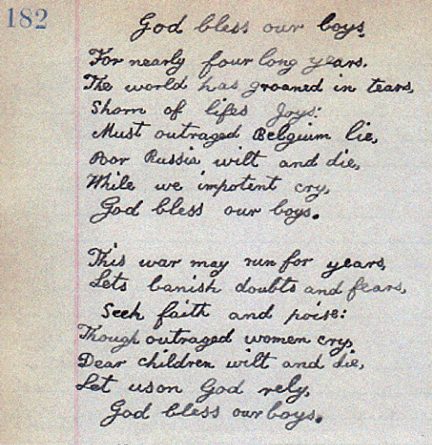 182
God bless our boys.
For nearly four long years.
The world has groaned in tears,
Shorn of lifes Joys:
Must outraged Belgium lie,
Poor Russia wilt and die,
While we impotent cry,
God bless our boys.
This war may run for years,
Lets banish doubts and fears,
Seek faith and poise:
Though outraged women cry,
Dear children wilt and die,
Let us on God rely,
God bless our boys.